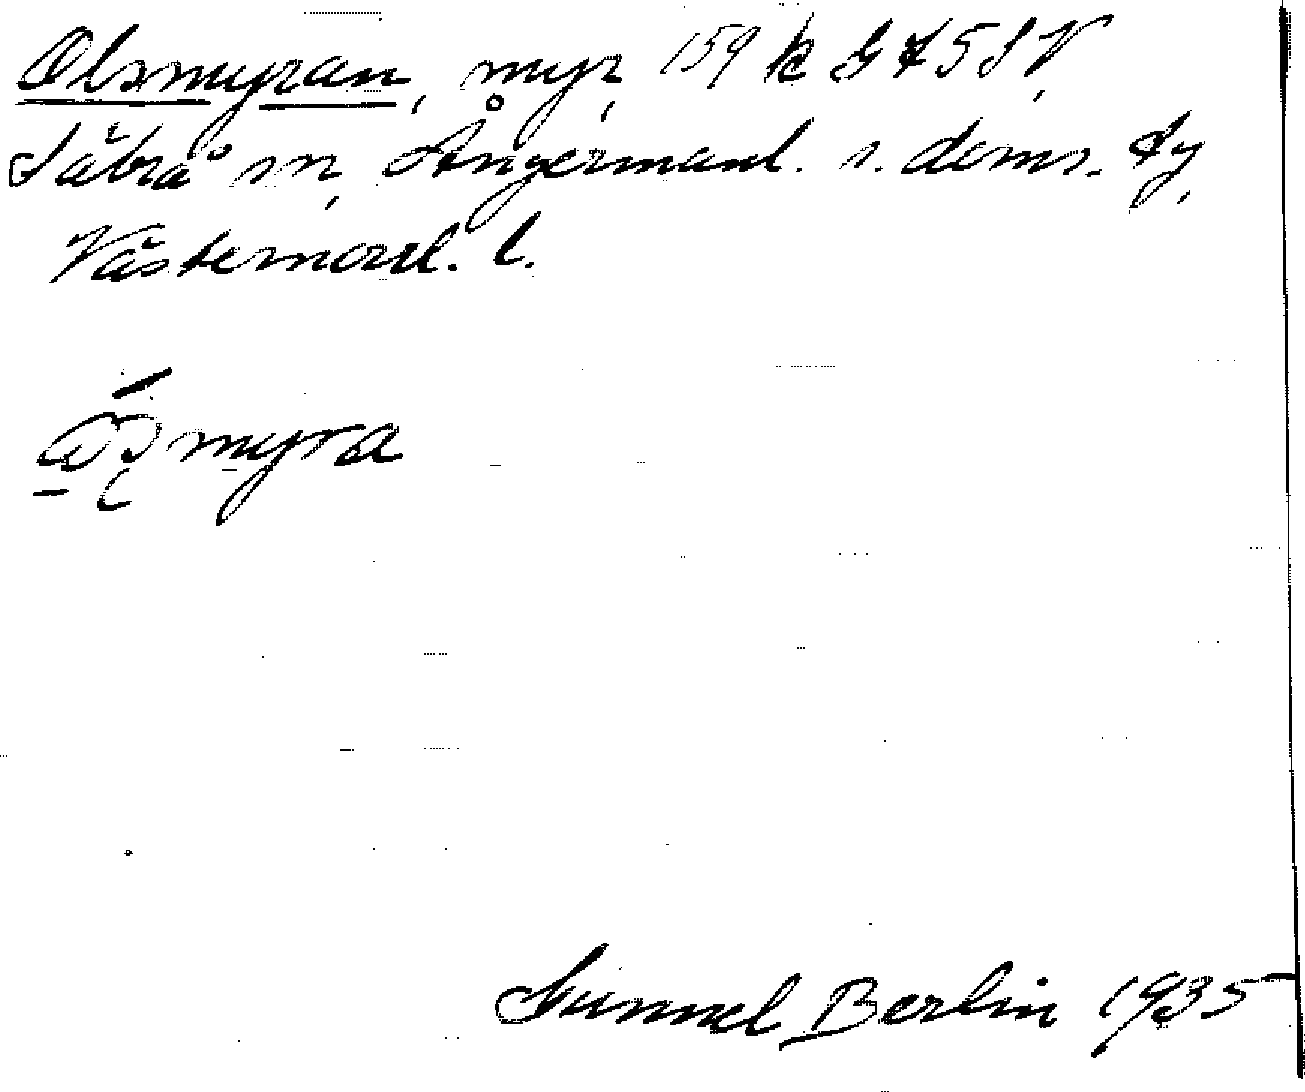 Olsmyran, myr, 159 k G X 5 S V,
Säbrå sn, Ångermanl. s. doms. dy,
Västernorrl. l.
myra
Gunnel Berlin 1935